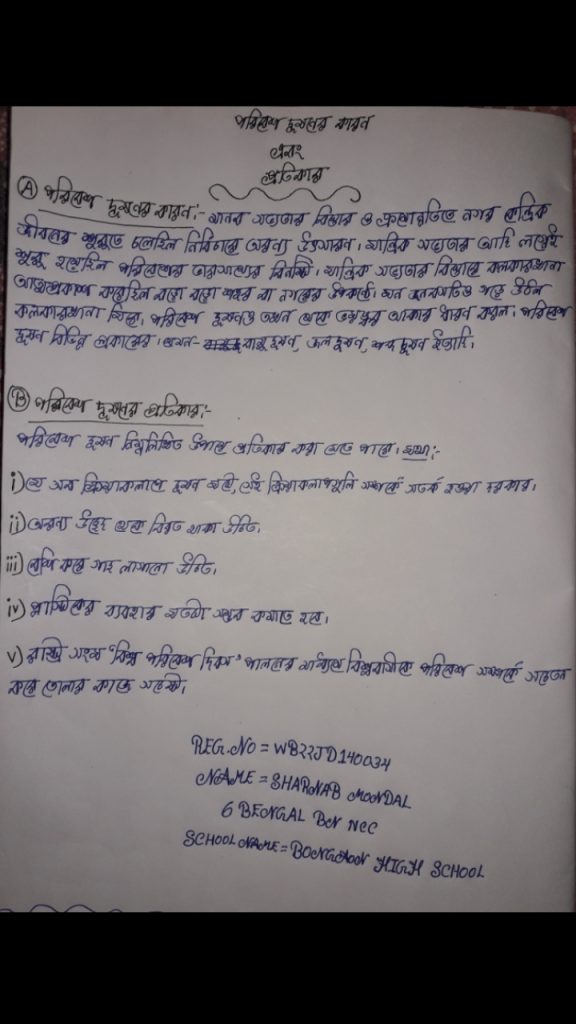 পরিবেশ দূষনের কারন
এবং
প্রতিকার
Ⓐ পরিবেশ দূষণের কারন:- মানব সভ্যতার বিস্তার ও ক্রমোন্নতিতে নগর কেন্দ্রিক
জীবনের শুরুতে চলেছিল নির্বিচারে অরন্য উৎসারন। যান্ত্রিক সভ্যতার আদি লগ্নেই
শুরু হয়েছিল পরিবেশের ভারসাম্যের বিনষ্টি। যান্ত্রিক সভ্যতার বিস্তারে কলকারখানা
আত্মপ্রকাশ করেছিল বড়ো বড়ো শহর বা নগরের উপকণ্ঠে। ঘন জনবসতিও গড়ে উঠল
কলকারখানা ঘিরে। পরিবেশ দূষনও তখন থেকে ভয়ঙ্কর আকার ধারন করল। পরিবেশ
দূষন বিভিন্ন প্রকারের। যেমন- বায়ু দূষন, জল দূষন, শব্দ দূষন ইত্যাদি।
Ⓑ পরিবেশ দূষনের প্রতিকার:-
পরিবেশ দূষন নিম্নলিখিত উপায়ে প্রতিকার করা যেতে পারে। যথা:-
i) যে সব ক্রিয়াকলাপে দূষন ঘটে, সেই ক্রিয়াকলাপগুলি সম্পর্কে সতর্ক হওয়া দরকার।
ii) অরন্য উচ্ছেদ থেকে বিরত থাকা উচিত।
iii) বেশি করে গাছ লাগানো উচিত।
iv) প্লাস্টিকের ব্যবহার যতটা সম্ভব কমাতে হবে।
v) রাষ্ট্র সংঘ "বিশ্ব পরিবেশ দিবস" পালনের মাধ্যমে বিশ্ববাসীকে পরিবেশ সম্পর্কে সচেতন
করে তোলার কাজে সচেষ্ট।
REG.NO = WB22JD140034
NAME = SHARNAB MONDAL
6 BEONGAL BN NCC
SCHOOL NAME = BONGAON HIGH SCHOOL